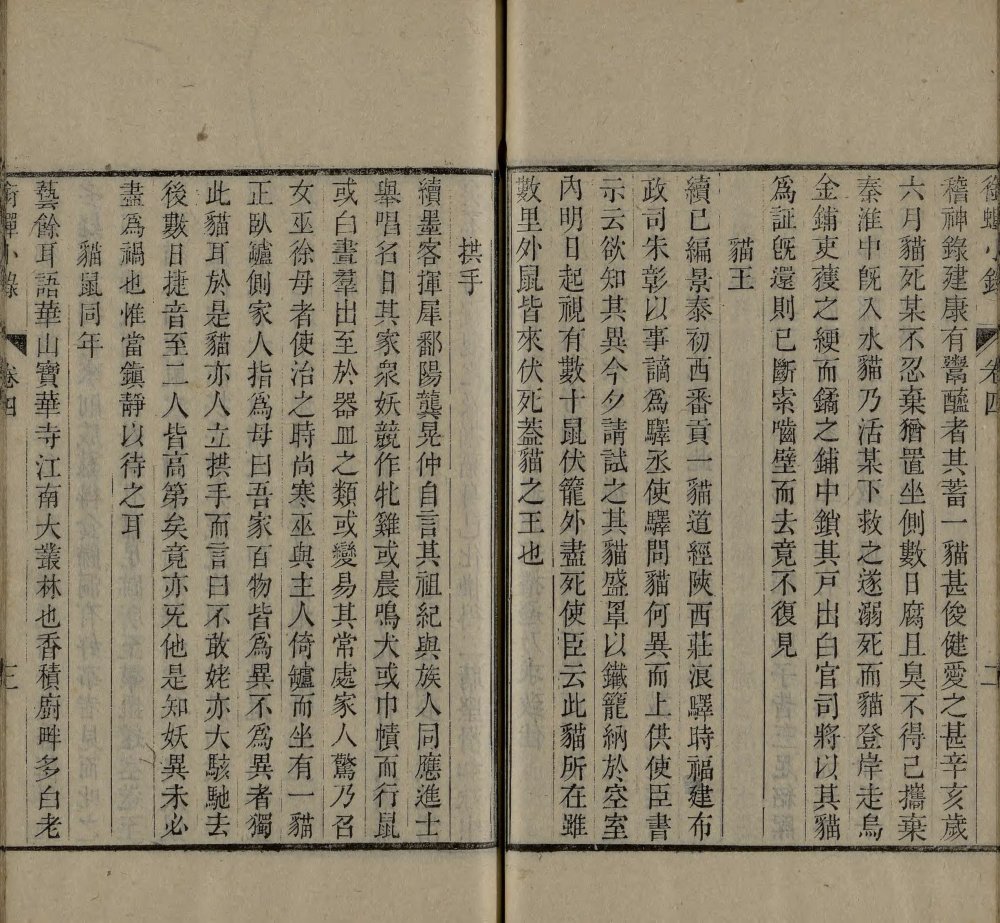 銜蟬小錄 卷四 二
稽神錄建康有鬻醯者其蓄一貓甚俊健愛之甚辛亥歲
六月貓死某不忍棄猶置坐側數日腐且臭不得已攜棄
秦淮中旣入水貓乃活某下救之遂溺死而貓登岸走烏
金鋪吏獲之綆而鐍之鋪中鎖其戸出白官司將以其貓
爲証旣還則已斷索嚙壁而去竟不復見
貓王
續已編景泰初西番貢一貓道經陝西莊浪驛時福建布
政司朱彰以事謫爲驛丞使驛問貓何異而上供使臣書
示云欲知其異今夕請試之其貓盛罩以鐵籠納於空室
內明日起視有數十鼠伏籠外盡死使臣云此貓所在雖
數里外鼠皆來伏死蓋貓之王也
拱手
續墨客揮犀鄱陽龔晃仲自言其祖紀與族人同應進士
舉唱名日其家衆妖競作牝雞或晨鳴犬或巾幘而行鼠
或白晝羣出至於器皿之類或變易其常處家人驚乃召
女巫徐母者使治之時尚寒巫與主人倚鑪而坐有一貓
正臥鑪側家人指爲母曰吾家百物皆爲異不爲異者獨
此貓耳於是貓亦人立拱手而言曰不敢姥亦大駭馳去
後數日捷音至二人皆高第矣竟亦旡他是知妖異未必
盡爲禍也惟當鎮靜以待之耳
貓鼠同年
藝餘耳語華山寶華寺江南大叢林也香積廚畔多白老
銜蟬小錄 卷四 三